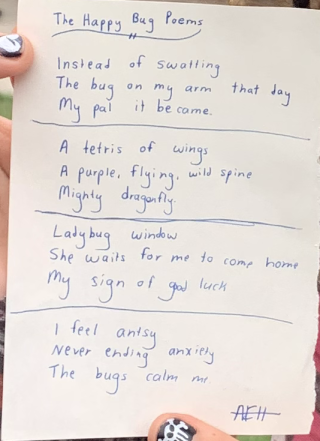 The Happy Bug Poems
Instead of swatting
The bug on my arm that day
My pal it became.
A tetris of wings
A purple, flying, wild spine
Mighty dragonfly.
Ladybug window
She waits for me to come home
My sign of good luck
I feel antsy
Never ending anxiety
The bugs calm me
AEH